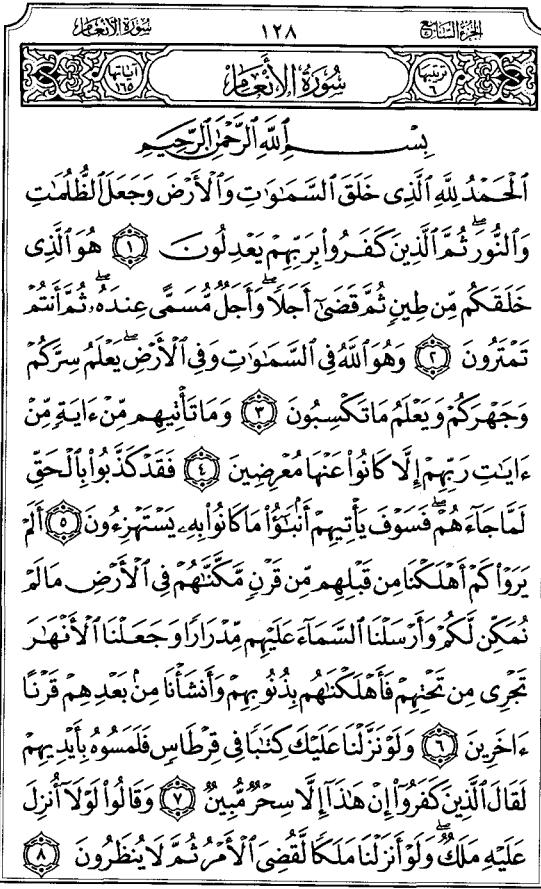 سُورَةُ الأَنْعَام ١٢٨ الجُزْءُ السَّابِعُ
ترتيبها ٦ سُورَةُ الأَنْعَام آياتها ١٦٥
بِسْمِ اللَّهِ الرَّحْمَٰنِ الرَّحِيمِ
الْحَمْدُ لِلَّهِ الَّذِي خَلَقَ السَّمَاوَاتِ وَالْأَرْضَ وَجَعَلَ الظُّلُمَاتِ
وَالنُّورَ ۖ ثُمَّ الَّذِينَ كَفَرُوا بِرَبِّهِمْ يَعْدِلُونَ ١ هُوَ الَّذِي
خَلَقَكُم مِّن طِينٍ ثُمَّ قَضَىٰ أَجَلًا ۖ وَأَجَلٌ مُّسَمًّى عِندَهُ ۖ ثُمَّ أَنتُمْ
تَمْتَرُونَ ٢ وَهُوَ اللَّهُ فِي السَّمَاوَاتِ وَفِي الْأَرْضِ ۖ يَعْلَمُ سِرَّكُمْ
وَجَهْرَكُمْ وَيَعْلَمُ مَا تَكْسِبُونَ ٣ وَمَا تَأْتِيهِم مِّنْ ءَايَةٍ مِّنْ
ءَايَاتِ رَبِّهِمْ إِلَّا كَانُوا عَنْهَا مُعْرِضِينَ ٤ فَقَدْ كَذَّبُوا بِالْحَقِّ
لَمَّا جَآءَهُمْ ۖ فَسَوْفَ يَأْتِيهِمْ أَنۢبَٰٓؤُا مَا كَانُوا بِهِۦ يَسْتَهْزِءُونَ ٥ أَلَمْ
يَرَوْا كَمْ أَهْلَكْنَا مِن قَبْلِهِم مِّن قَرْنٍ مَّكَّنَّاهُمْ فِي الْأَرْضِ مَا لَمْ
نُمَكِّن لَّكُمْ وَأَرْسَلْنَا السَّمَآءَ عَلَيْهِم مِّدْرَارًا وَجَعَلْنَا الْأَنْهَارَ
تَجْرِي مِن تَحْتِهِمْ فَأَهْلَكْنَاهُم بِذُنُوبِهِمْ وَأَنشَأْنَا مِنۢ بَعْدِهِمْ قَرْنًا
ءَاخَرِينَ ٦ وَلَوْ نَزَّلْنَا عَلَيْكَ كِتَابًا فِي قِرْطَاسٍ فَلَمَسُوهُ بِأَيْدِيهِمْ
لَقَالَ الَّذِينَ كَفَرُوا إِنْ هَٰذَآ إِلَّا سِحْرٌ مُّبِينٌ ٧ وَقَالُوا لَوْلَآ أُنزِلَ
عَلَيْهِ مَلَكٌ ۖ وَلَوْ أَنزَلْنَا مَلَكًا لَّقُضِيَ الْأَمْرُ ثُمَّ لَا يُنظَرُونَ ٨